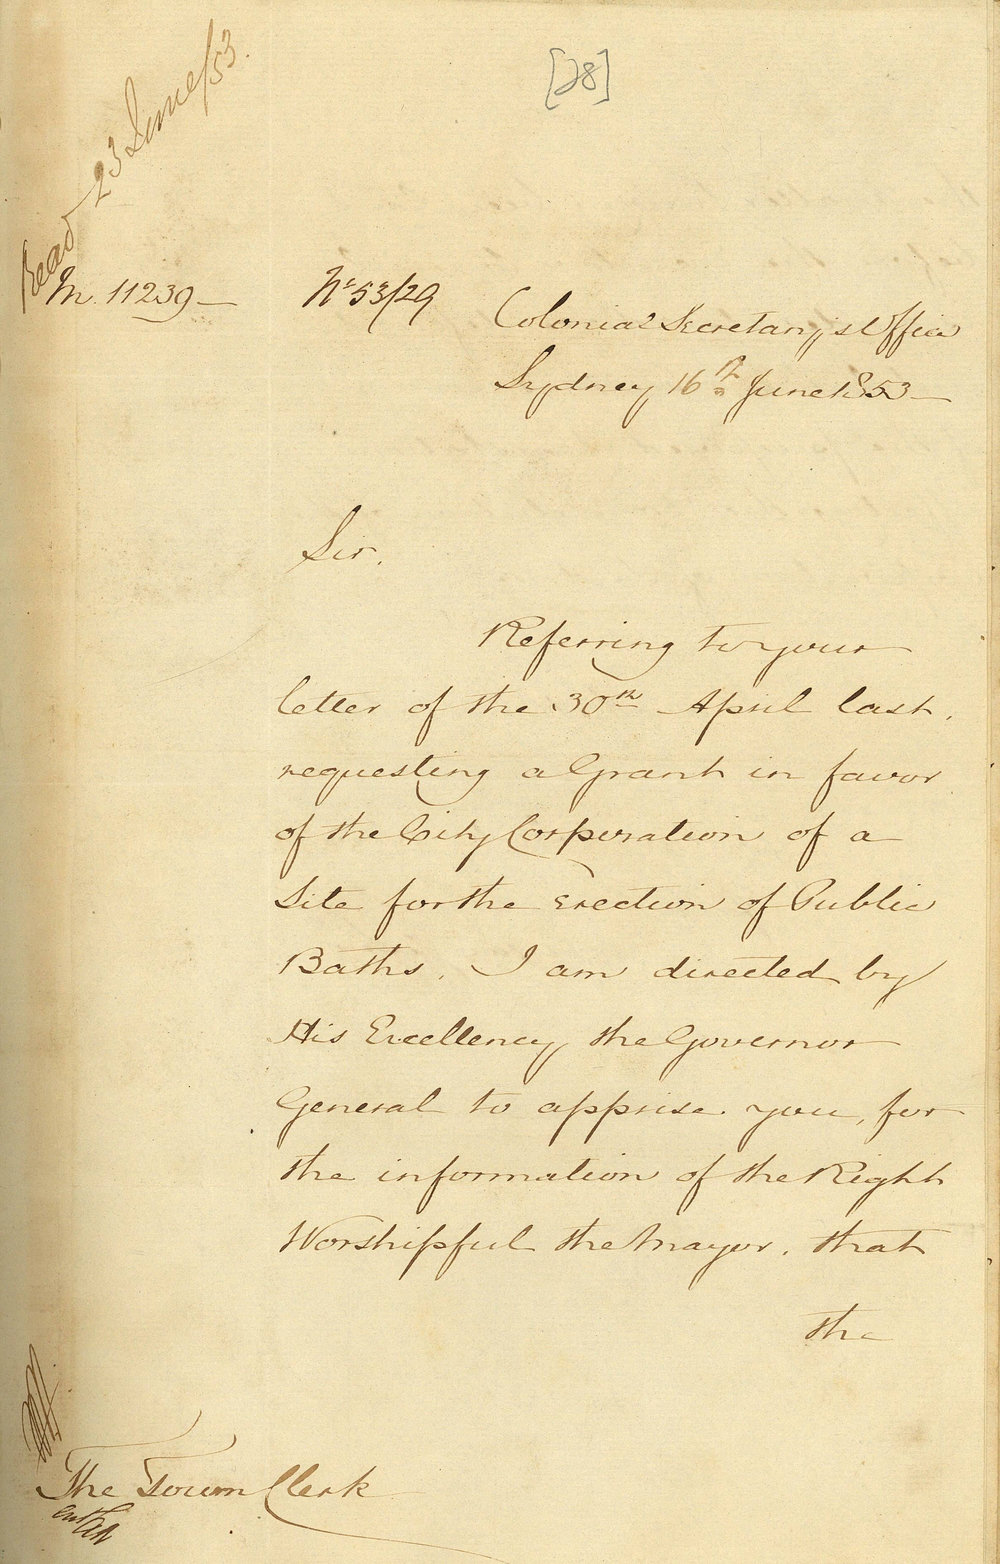 [28]
Read 23 June/53.
M. 11239—
No 53/29
Colonial Secretary's Office
Sydney 16th June 1853—
Sir,
Referring to your
letter of the 30th April last,
requesting a Grant in favor
of the City Corporation of a
Site for the Erection of Public
Baths, I am directed by
His Excellency the Governor
General to apprise you, for
the information of the Right
Worshipful the Mayor, that
the
The Town Clerk